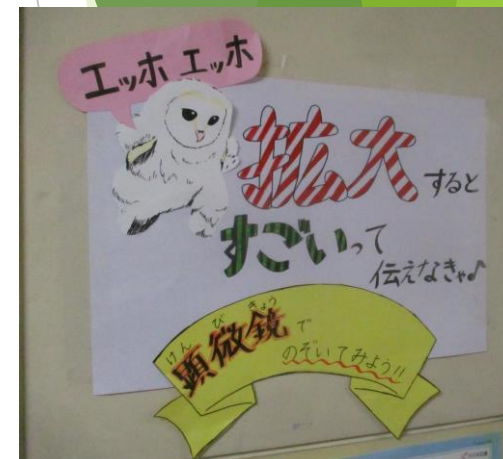 エッホ エッホ
拡大すると
すごいって
伝えなきゃ♪
けんびきょう
顕微鏡で
のぞいてみよう!!